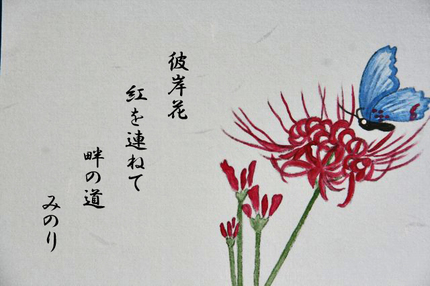 彼岸花
紅を連ねて
畔の道
みのり